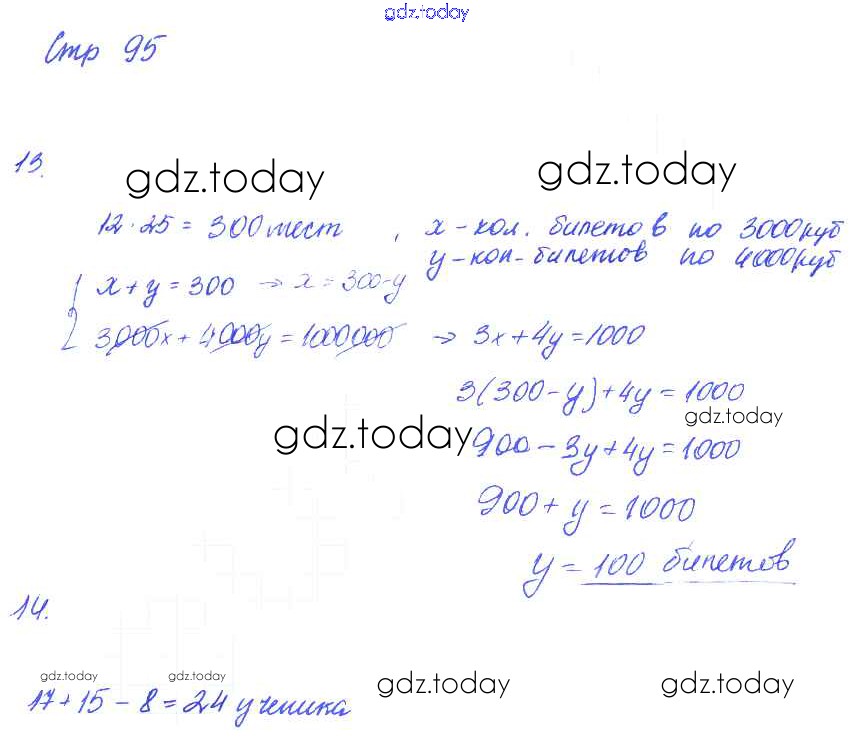 gdz.today
Стр 95
13.
gdz.today gdz.today
12·25 = 300 мест , x - кол. билетов по 3000 руб
y - кол - билетов по 4000 руб
{ x + y = 300 → x = 300 - y
3000x + 4000y = 1000000 → 3x + 4y = 1000
3(300 - y) + 4y = 1000
gdz.today
gdz.today 900 - 3y + 4y = 1000
900 + y = 1000
y = 100 билетов
14.
gdz.today gdz.today gdz.today gdz.today
17 + 15 - 8 = 24 ученика